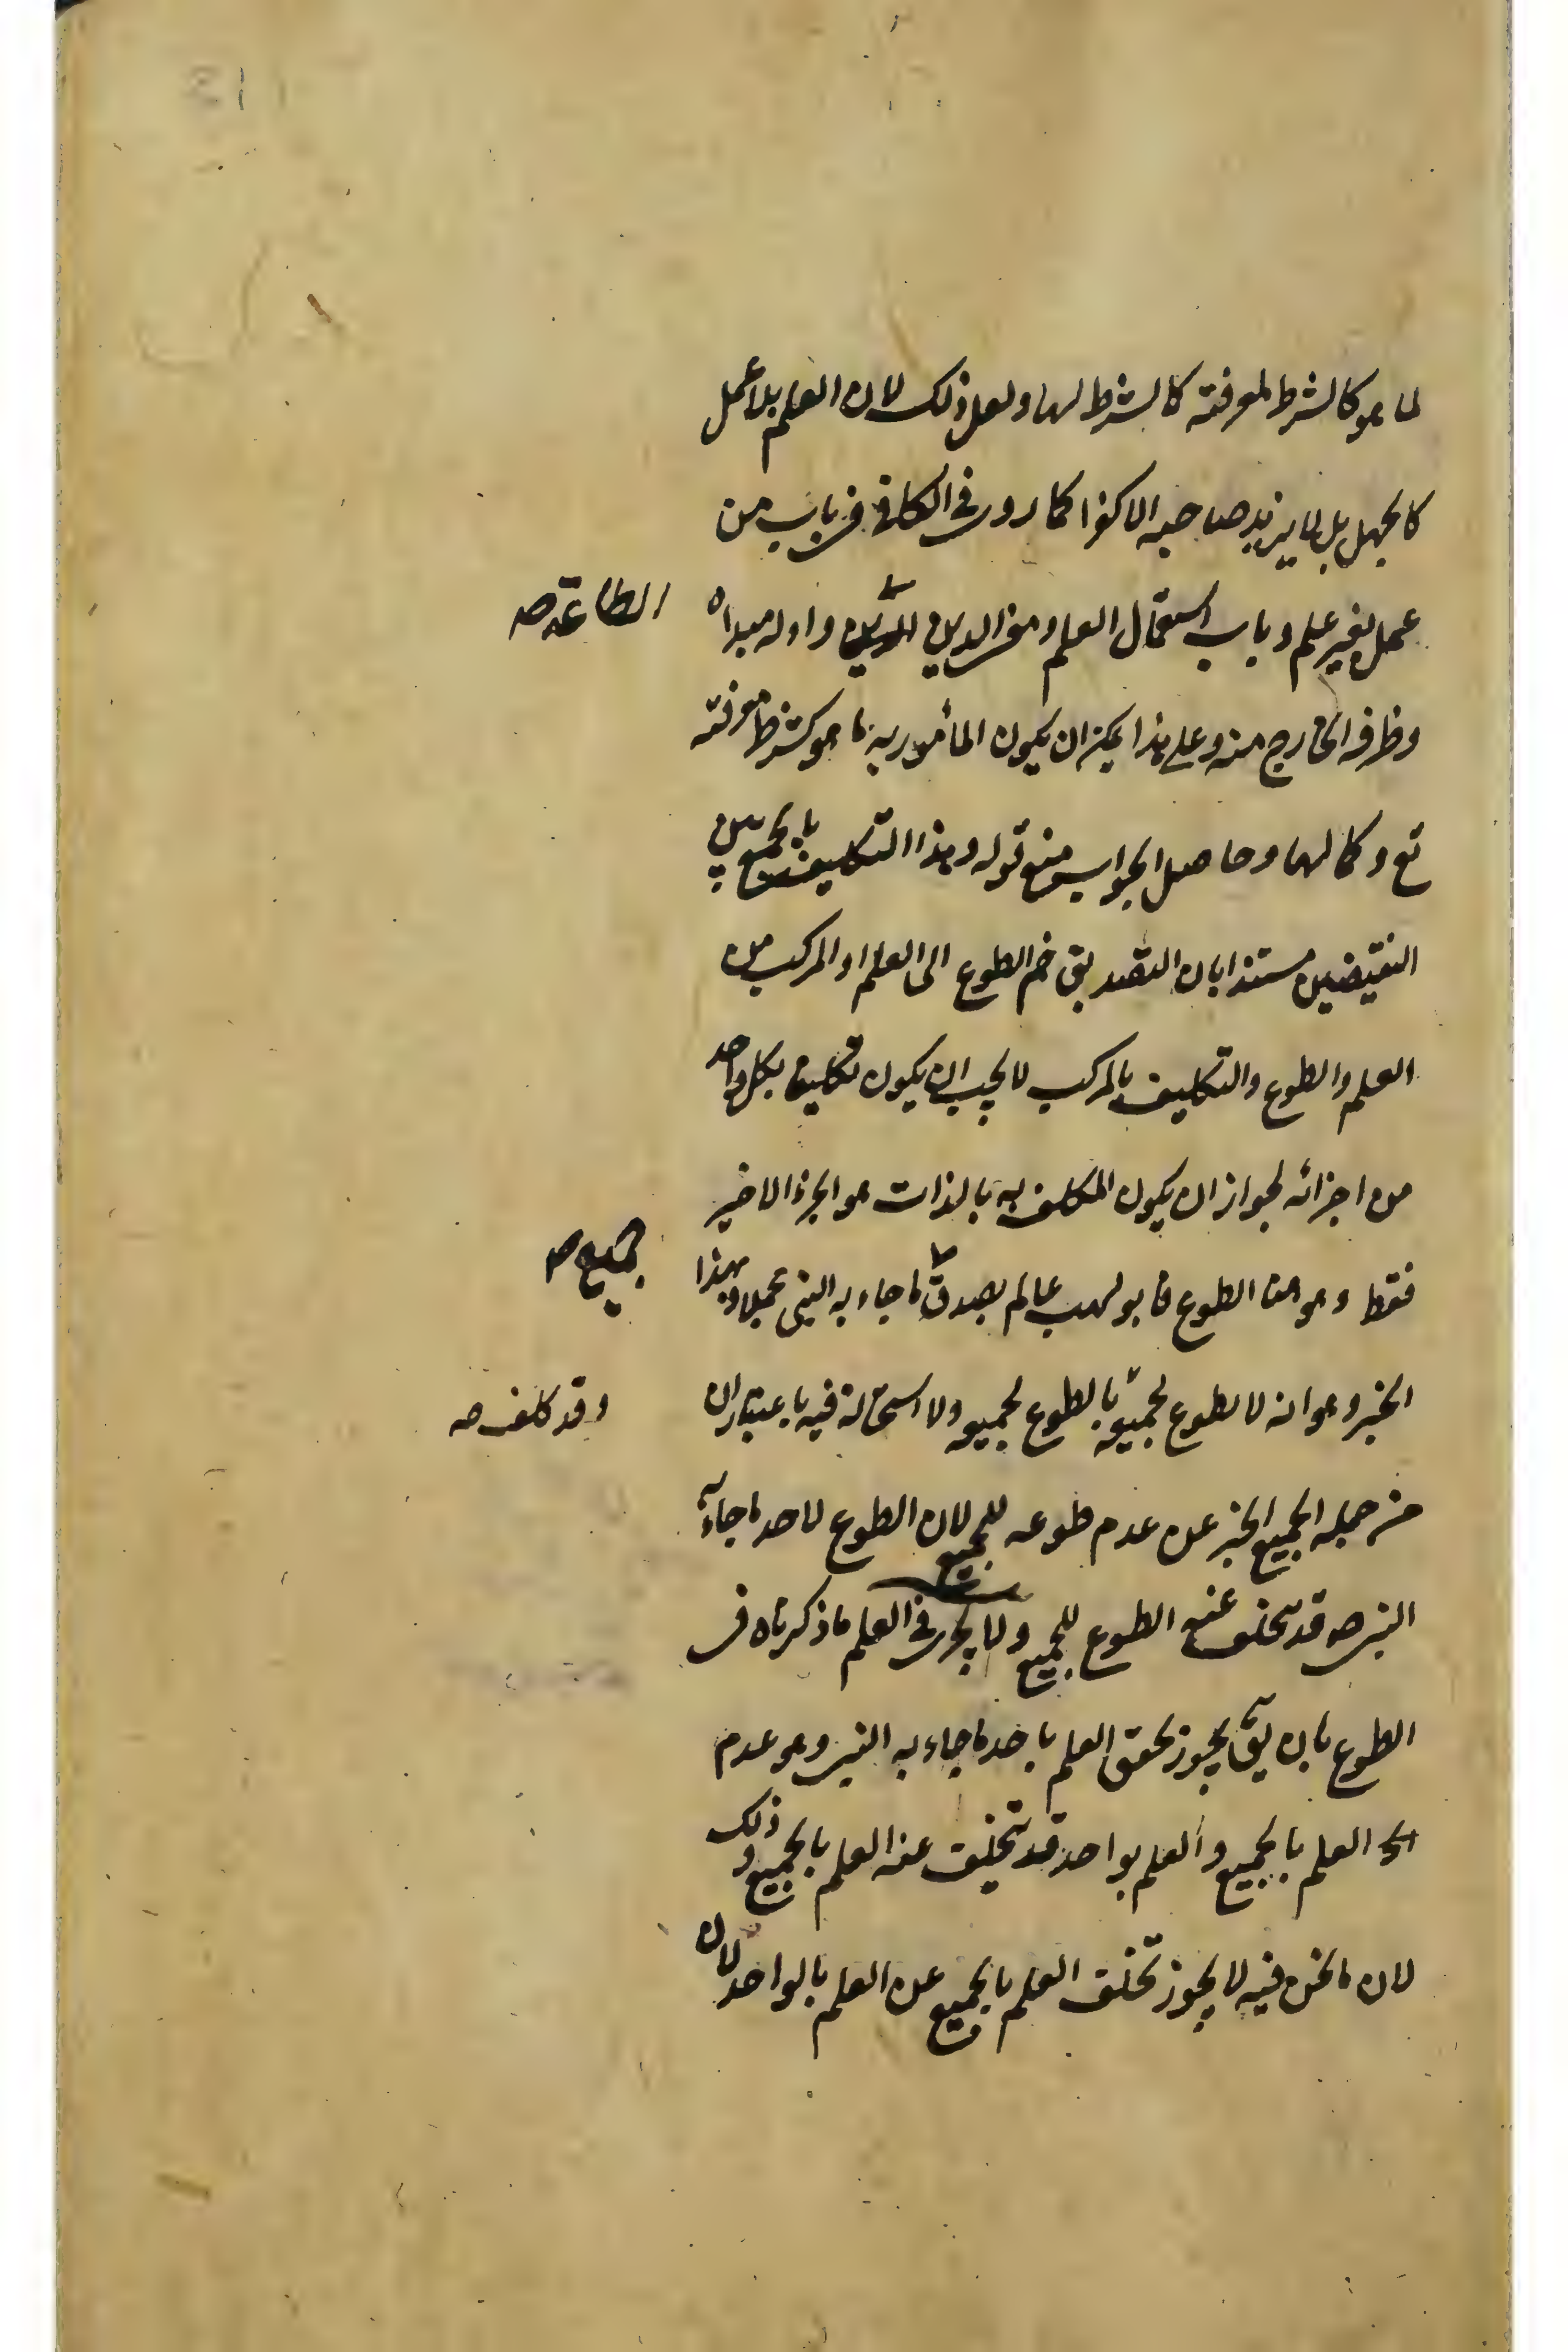 لما هو كالشرط لمعرفته كالشرط لها ولعل ذلك لان العلم بلا عمل
كالجهل بل لا يزيد صاحبه الا كفرا كما روى فى الكافى فى باب من
عمل بغير علم وباب استعمال العلم ومعنى الدين واوله مبداه
الطاعة صح
وظرفه الخارج منه وعلى هذا يمكن ان يكون المأمور به ما هو كشرط معرفته
تع وكمالها وحاصل الجواب منع قوله وهذا التكليف بالجمع بين
النقيضين مستندا بان التصديق ضم الطوع الى العلم او المركب من
العلم والطوع والتكليف بالمركب لا يجب ان يكون تكليفا بكل واحد
من اجزائه لجواز ان يكون المكلف به بالذات هو الجزء الاخير
فقط وهو هنا الطوع فابو لهب عالم بصدق ما جاء به النبى مجملا وبهذا
بجميع صح
الخبر وهو انه لا يطوع لجميعه بالطوع لجميعه ولا استحالة فيه باعتبار ان
وقد كلف صح
من جملة الجميع الخبر عن عدم طوعه للجميع لان الطوع لاحد ما جاء به
النبى ص قد يتخلف عنه الطوع للجميع ولا يجرى فى العلم ما ذكرناه فى
الطوع بان يق يجوز تحقق العلم باحد ما جاء به النبى وهو عدم
العلم بالجميع والعلم بواحد قد يتخلف عنه العلم بالجميع وذلك
لان ما نحن فيه لا يجوز تخلف العلم بالجميع عن العلم بالواحد لان